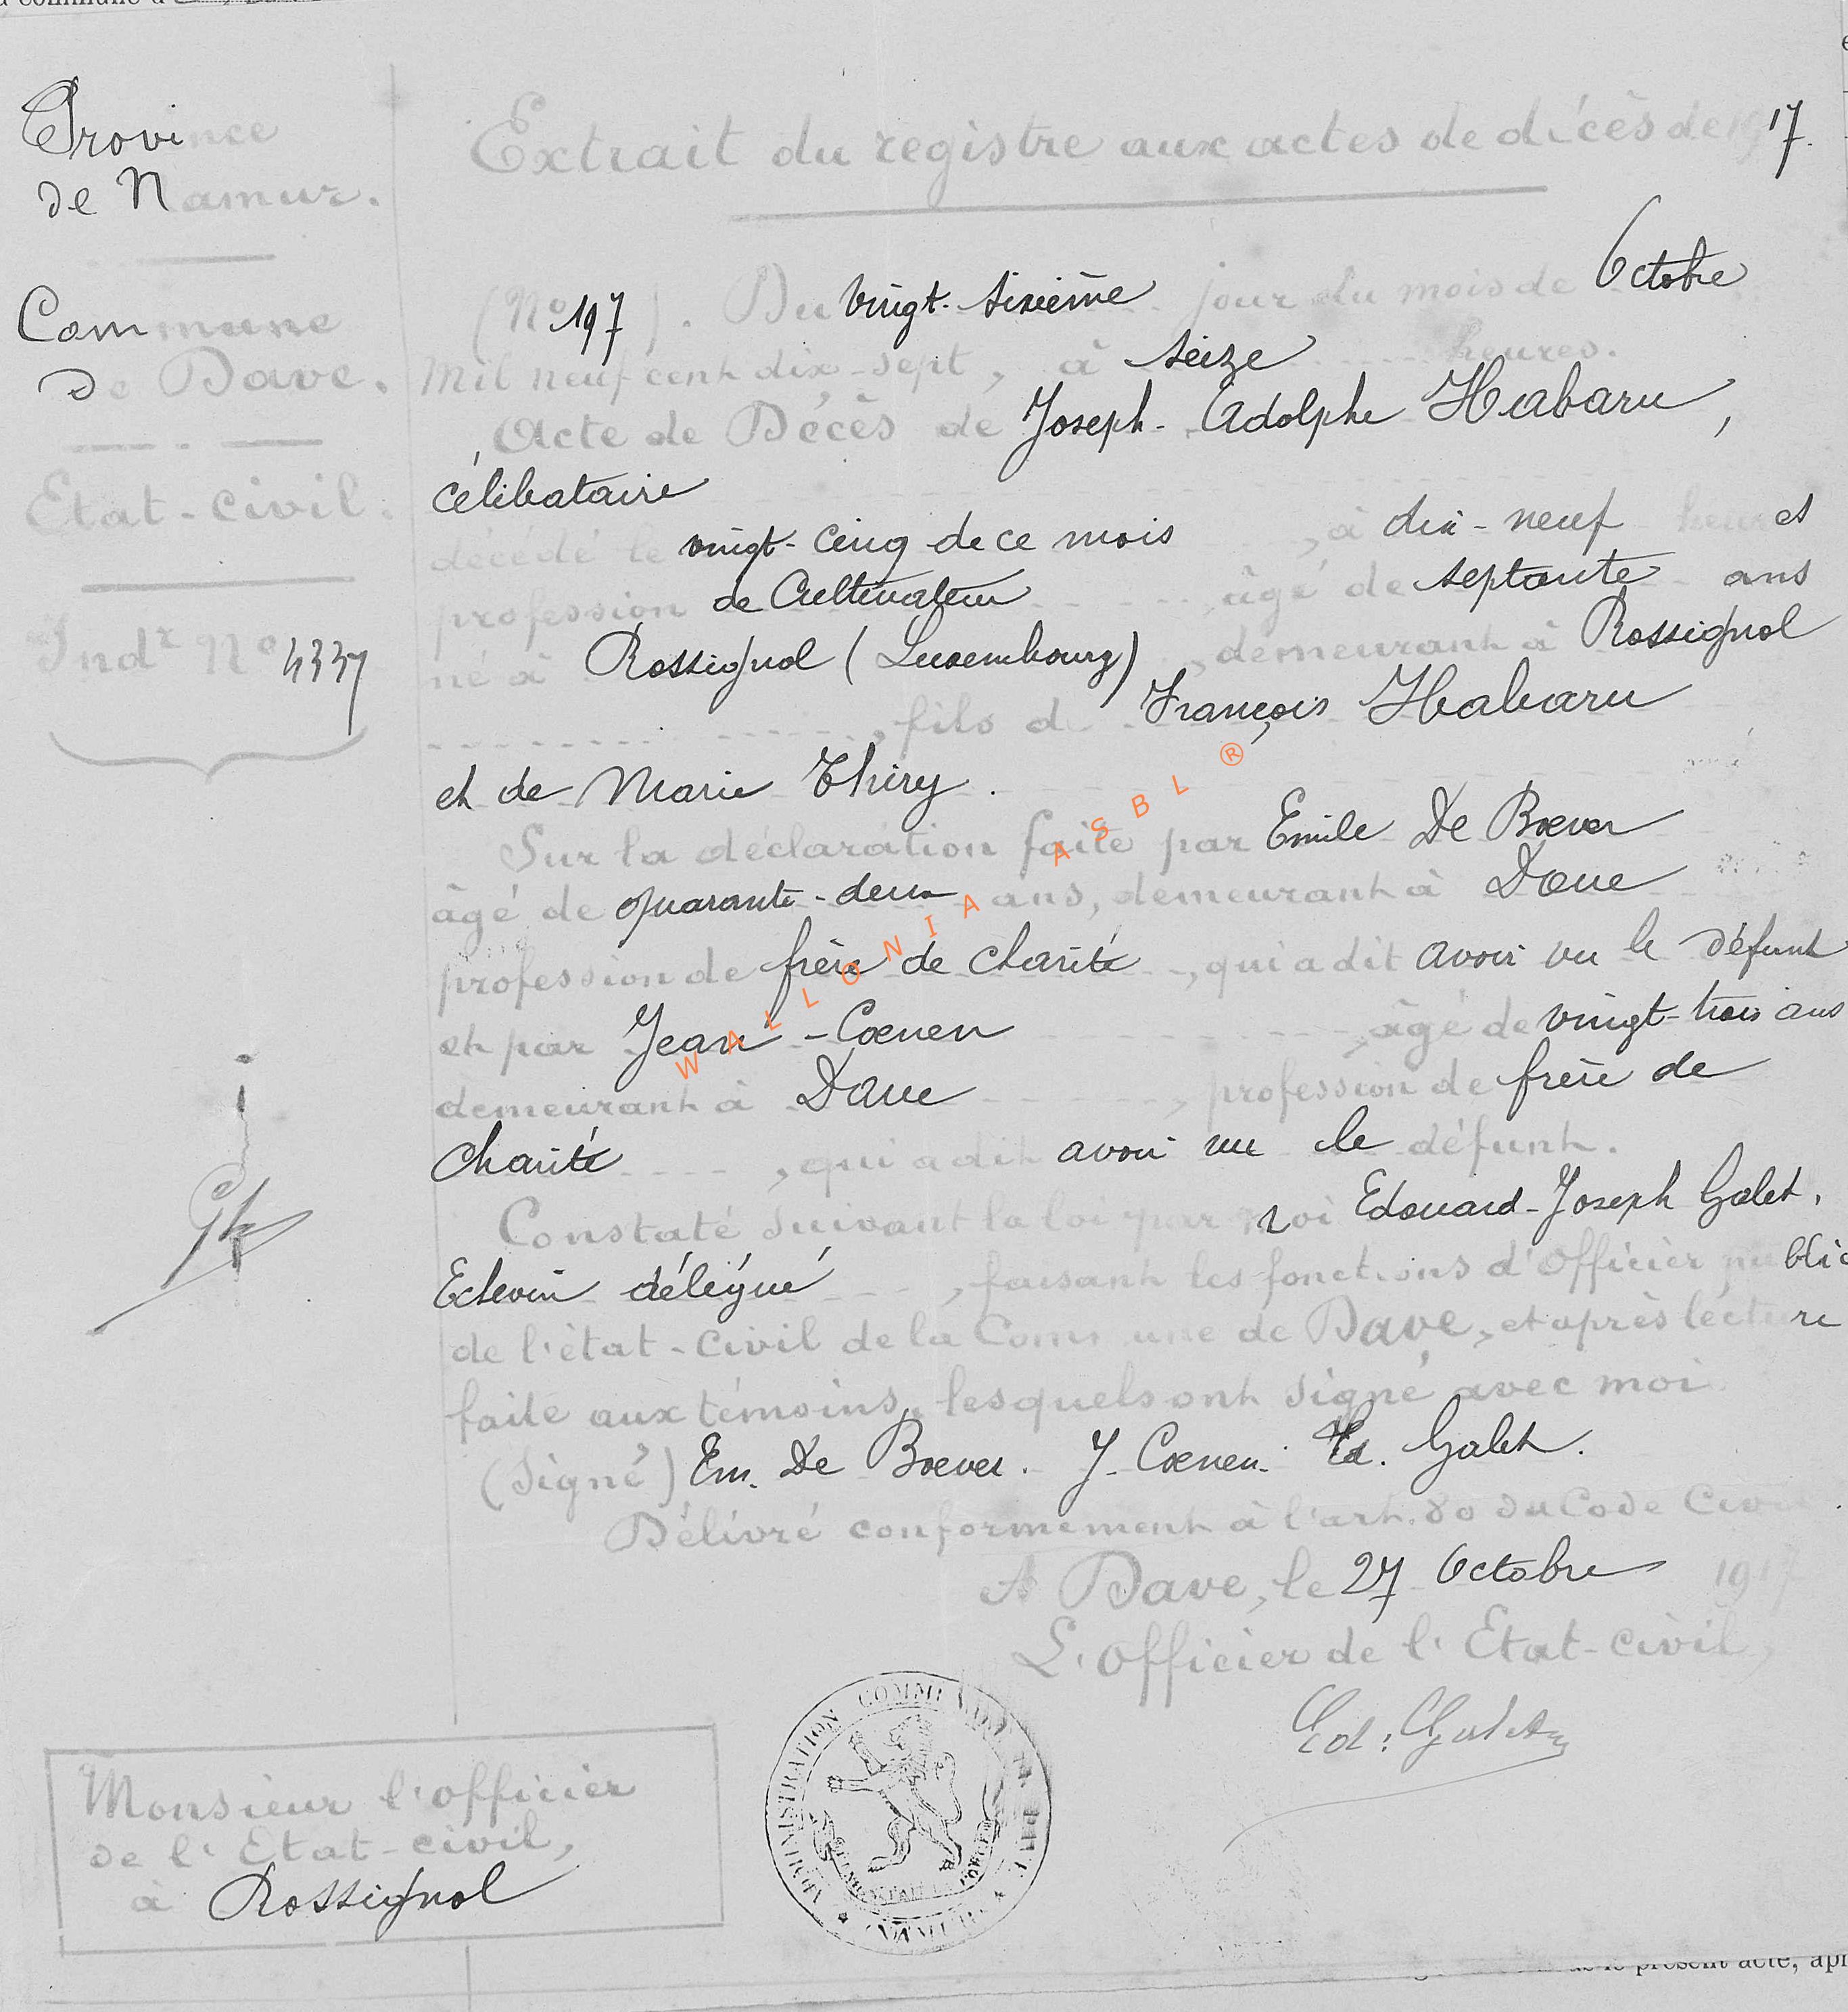 Province
de Namur.
Commune
De Dave.
Etat-civil.
Indr No 4337
Extrait du registre aux actes de décès de 1917.
(No 197). Du vingt-sixième jour du mois de Octobre
Mil neuf cent dix-sept, à seize heures.
Acte de Décès de Joseph-Adolphe Habaru,
célibataire
décédé le vingt-cinq de ce mois, à dix-neuf heures
profession de Cultivateur, âgé de septante ans
né à Rossignol (Luxembourg), demeurant à Rossignol
, fils de François Habaru
et de Marie Thiry.
Sur la déclaration faite par Emile De Boever
âgé de quarante-deux ans, demeurant à Dave
profession de frère de charité, qui a dit avoir vu le défunt
et par Jean-Coenen, âgé de vingt-trois ans
demeurant à Dave, profession de frère de
charité, qui a dit avoir vu le défunt.
Constaté suivant la loi par moi Edouard-Joseph Galet,
Echevin délégué, faisant les fonctions d'Officier public
de l'état-civil de la Commune de Dave, et après lecture
faite aux témoins, lesquels ont signé avec moi
(Signé) Em. De Boever. J. Coenen. Ed. Galet.
Délivré conformement à l'art. 80 du Code Civil
A Dave, le 27 Octobre 1917
L'Officier de l'Etat-civil,
Ed. Galet
Monsieur l'officier
de l'Etat-civil,
à Rossignol
ADMINISTRATION COMMUNALE DE DAVE
NAMUR
WALLONIA ASBL ®
présent acte, apr